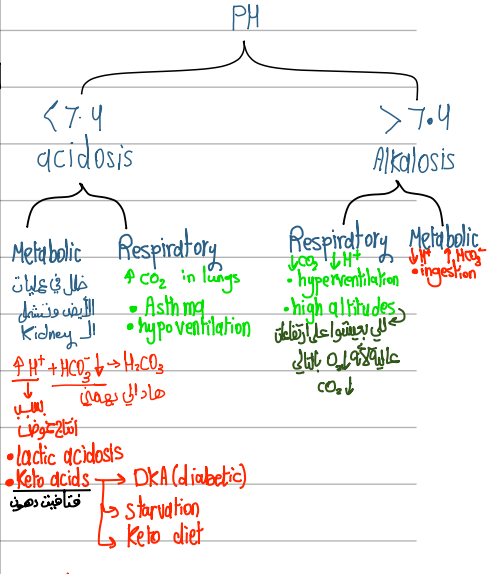 PH
< 7.4
acidosis
> 7.4
Alkalosis
Metabolic
خلل في عمليات
الأيض وتشمل
الـ Kidney
↑ H⁺ + HCO₃⁻ ↓ → H₂CO₃
هاد الي بهمني
↓
بسبب
انتاج حموض
• lactic acidosis
• Keto acids → DKA (diabetic)
→ starvation
→ Keto diet
Respiratory
↑ CO₂ in lungs
• Asthma
• hypoventilation
Respiratory
↓CO₂ ↓H⁺
• hyperventilation
• high altitudes
اللي بعيشوا على ارتفاعات
عالية
O₂↓ بالتالي
CO₂↓
Metabolic
↓H⁺ ↑HCO₃⁻
• ingestion